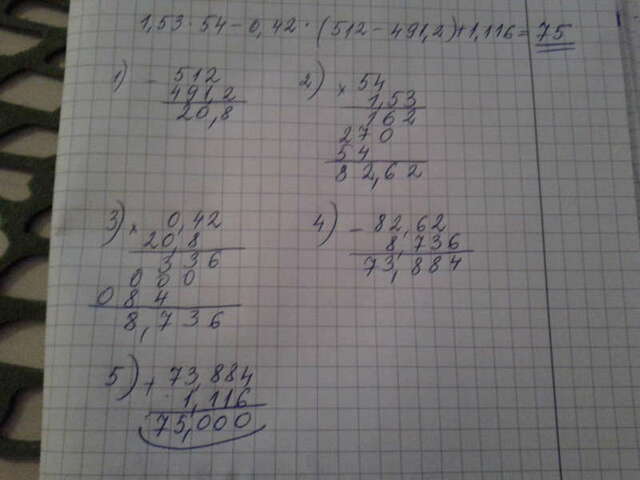 1,53 · 54 - 0,42 · (512 - 491,2) + 1,116 = 75
1) - 512
491,2
20,8
2) × 54
1,53
162
270
54
82,62
3) × 0,42
20,8
336
000
084
8,736
4) - 82,62
8,736
73,884
5) + 73,884
1,116
75,000